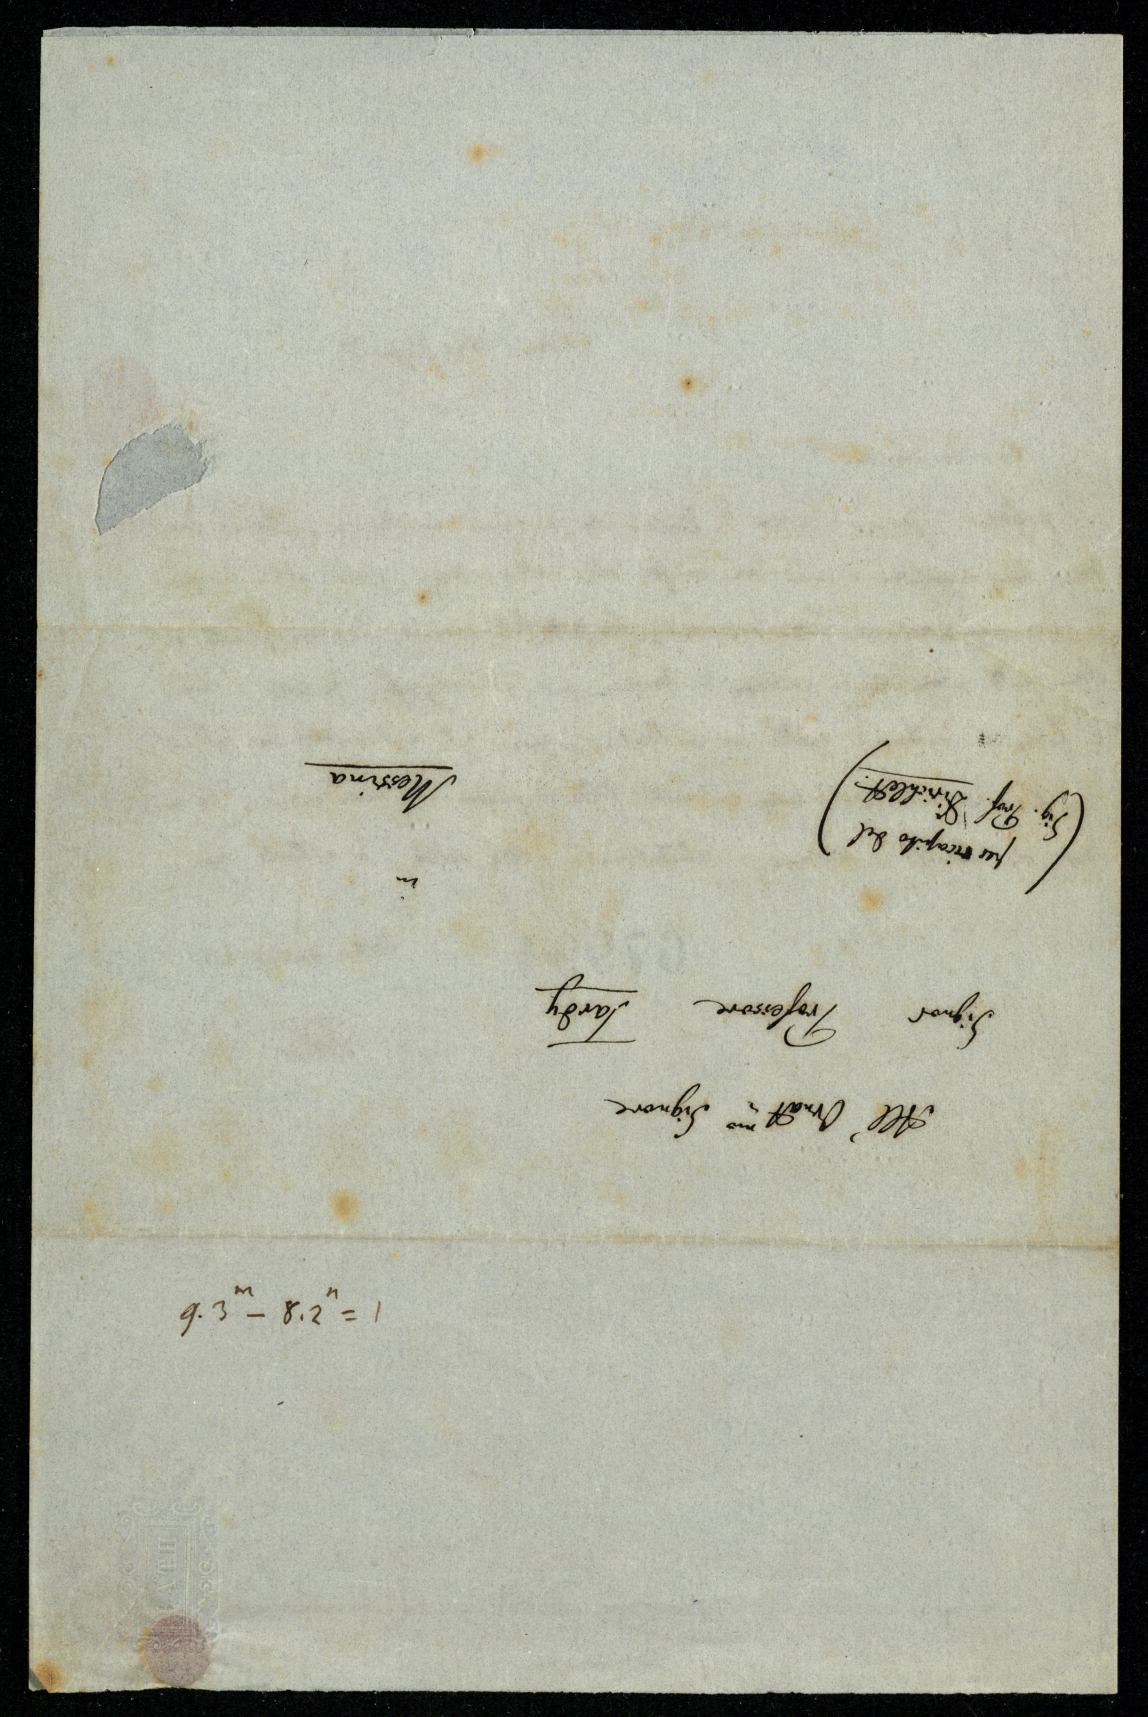 All' Ornat.mo Signore
Signor Professore Tardy
(per ricapito del
Sig. Prof. Dirichlet.)
in
Messina
9.3^m - 8.2^n = 1